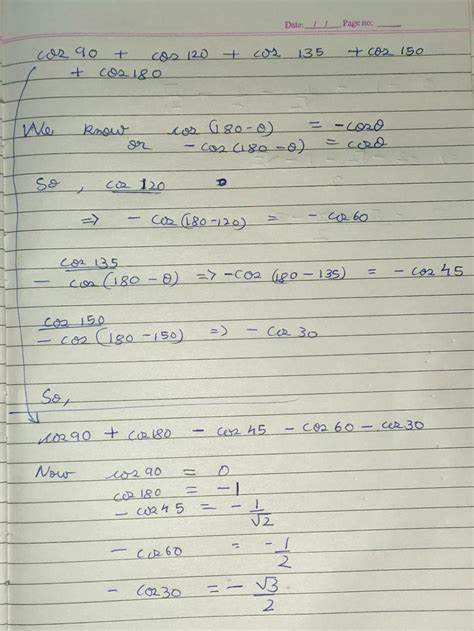 Date: / / Page no:
cos 90 + cos 120 + cos 135 + cos 150
+ cos 180
We know cos (180-θ) = -cosθ
or -cos (180-θ) = cosθ
So, cos 120
=> - cos (180-120) = - cos 60
cos 135
- cos (180 - θ) => -cos (180 - 135) = - cos 45
cos 150
- cos (180 - 150) => - cos 30
So,
cos 90 + cos 180 - cos 45 - cos 60 - cos 30
Now cos 90 = 0
cos 180 = -1
- cos 45 = - 1/√2
- cos 60 = -1/2
- cos 30 = - √3/2